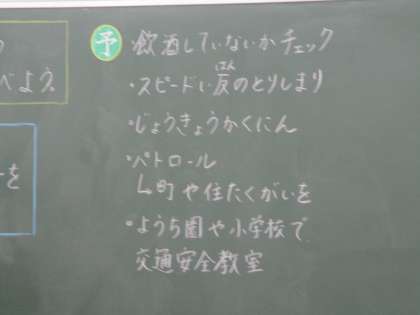 べよう。
を
予 飲酒していないかチェック
・スピードい反のとりしまり
はん
・じょうきょうかくにん
・パトロール
町や住たくがいを
・ようち園や小学校で
交通安全教室